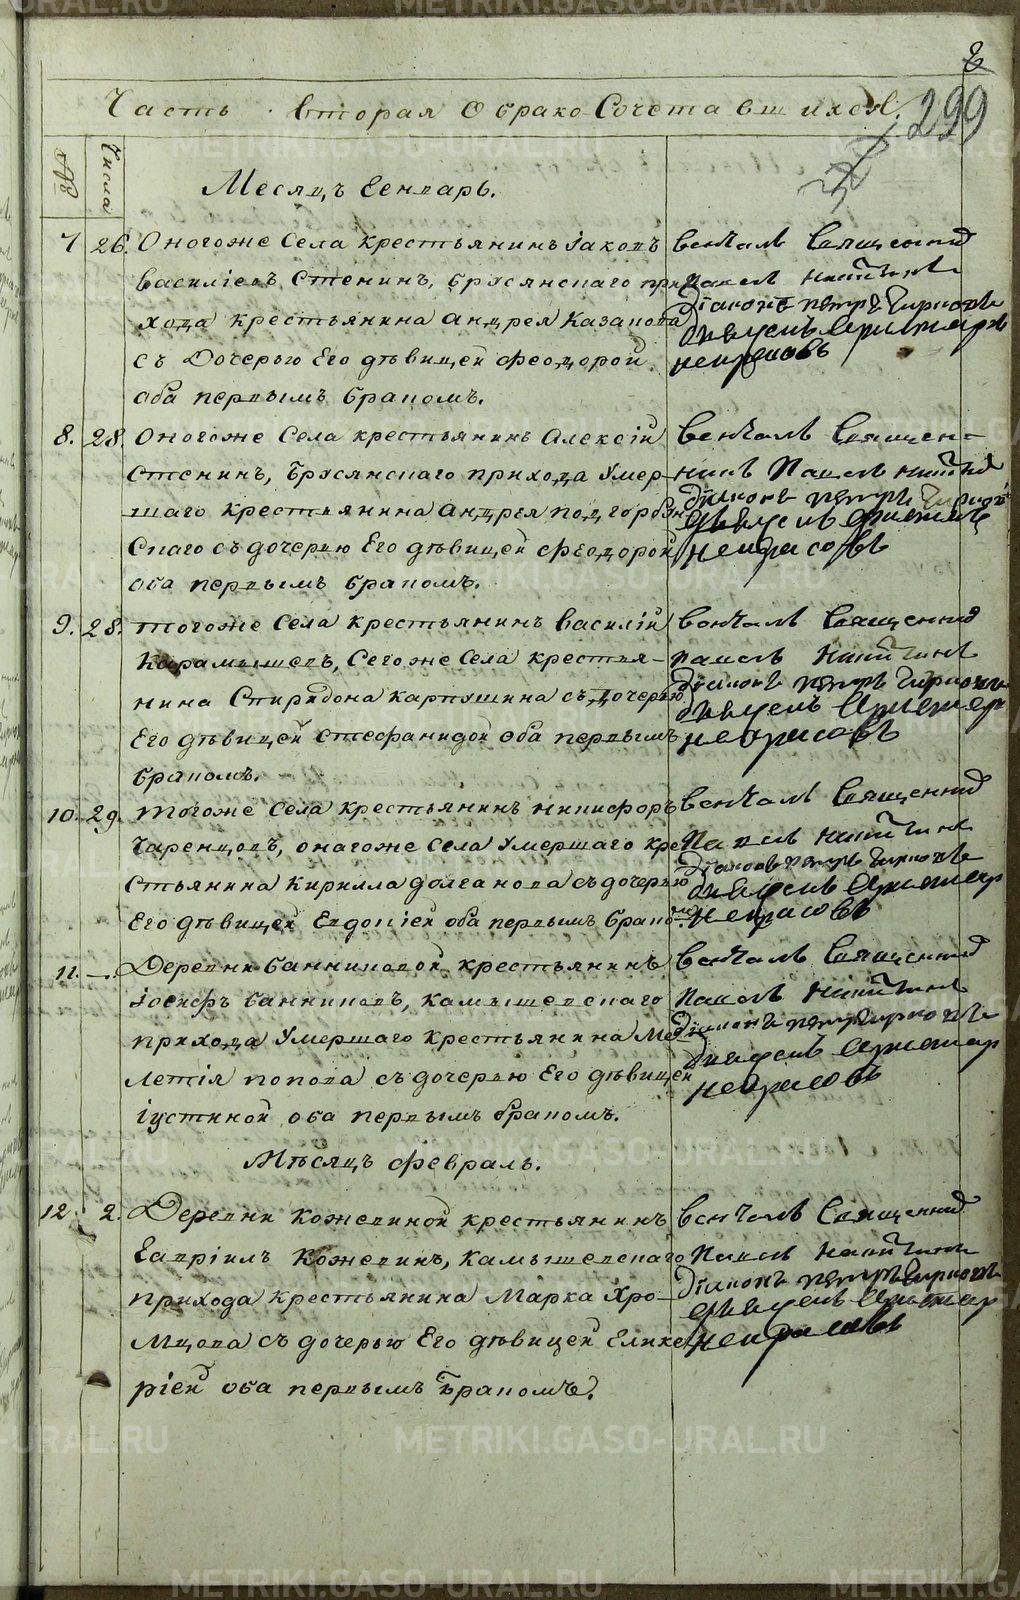 Часть вторая О брако Сочета вшихся.
299
№
Числа
Месяцъ Генварь.
7 26. Оногоже Села крестьянинъ Iаковъ
василiевъ Стенинъ, брусянскаго при
хода крестьянина Андрея Казанова
съ Дочерью Его дѣвицей Феодорой
оба первымъ бракомъ.
венчалъ Священник
Павелъ Никитинъ
дiаконъ петръ
некрасовъ
8. 28. Оногоже Села крестьянинъ Алексiй
Стенинъ, Брусянскаго прихода Умер-
шаго крестьянина Андрея подгорбун
Скаго съ дочерью Его дѣвицей Феодорой
оба первымъ бракомъ.
венчалъ Священ-
никъ Павелъ Никитин
дiаконъ петръ
некрасовъ
9. 28. тогоже Села крестьянинъ василiй
Карамышевъ, Сегоже Села крестья-
нина Спиридона карпушина съ дочерью
Его дѣвицей Стефанидой оба первымъ
бракомъ.
венчалъ Священник
павелъ Никитинъ
дiаконъ петръ
некрасовъ
10. 29. тогоже Села крестьянинъ никифоръ
Чаренцовъ, онагоже Села Умершаго кре
Стьянина Кирилла долганова съ дочерью
Его дѣвицей Евдокiей оба первымъ брако
венчалъ Священник
Павелъ Никитинъ
дiаконъ петръ
некрасовъ
11. —. Деревни банниковой крестьянинъ
Iосифъ банниковъ, камышевскаго
прихода Умершаго крестьянина Ме
летiя попова съ дочерью Его дѣвицей
Iустиной оба первымъ бракомъ.
венчалъ Священник
Павелъ Никитинъ
дiаконъ петръ
некрасовъ
Мѣсяцъ февраль.
12 2. Деревни кожевиной крестьянинъ
Гаврiилъ Кожевинъ, камышевскаго
прихода крестьянина Марка Хро-
мцова съ дочерью Его дѣвицей Глике
рiей оба первымъ бракомъ.
венчалъ Священник
Павелъ Никитинъ
дiаконъ петръ
некрасовъ
METRIKI.GASO-URAL.RU